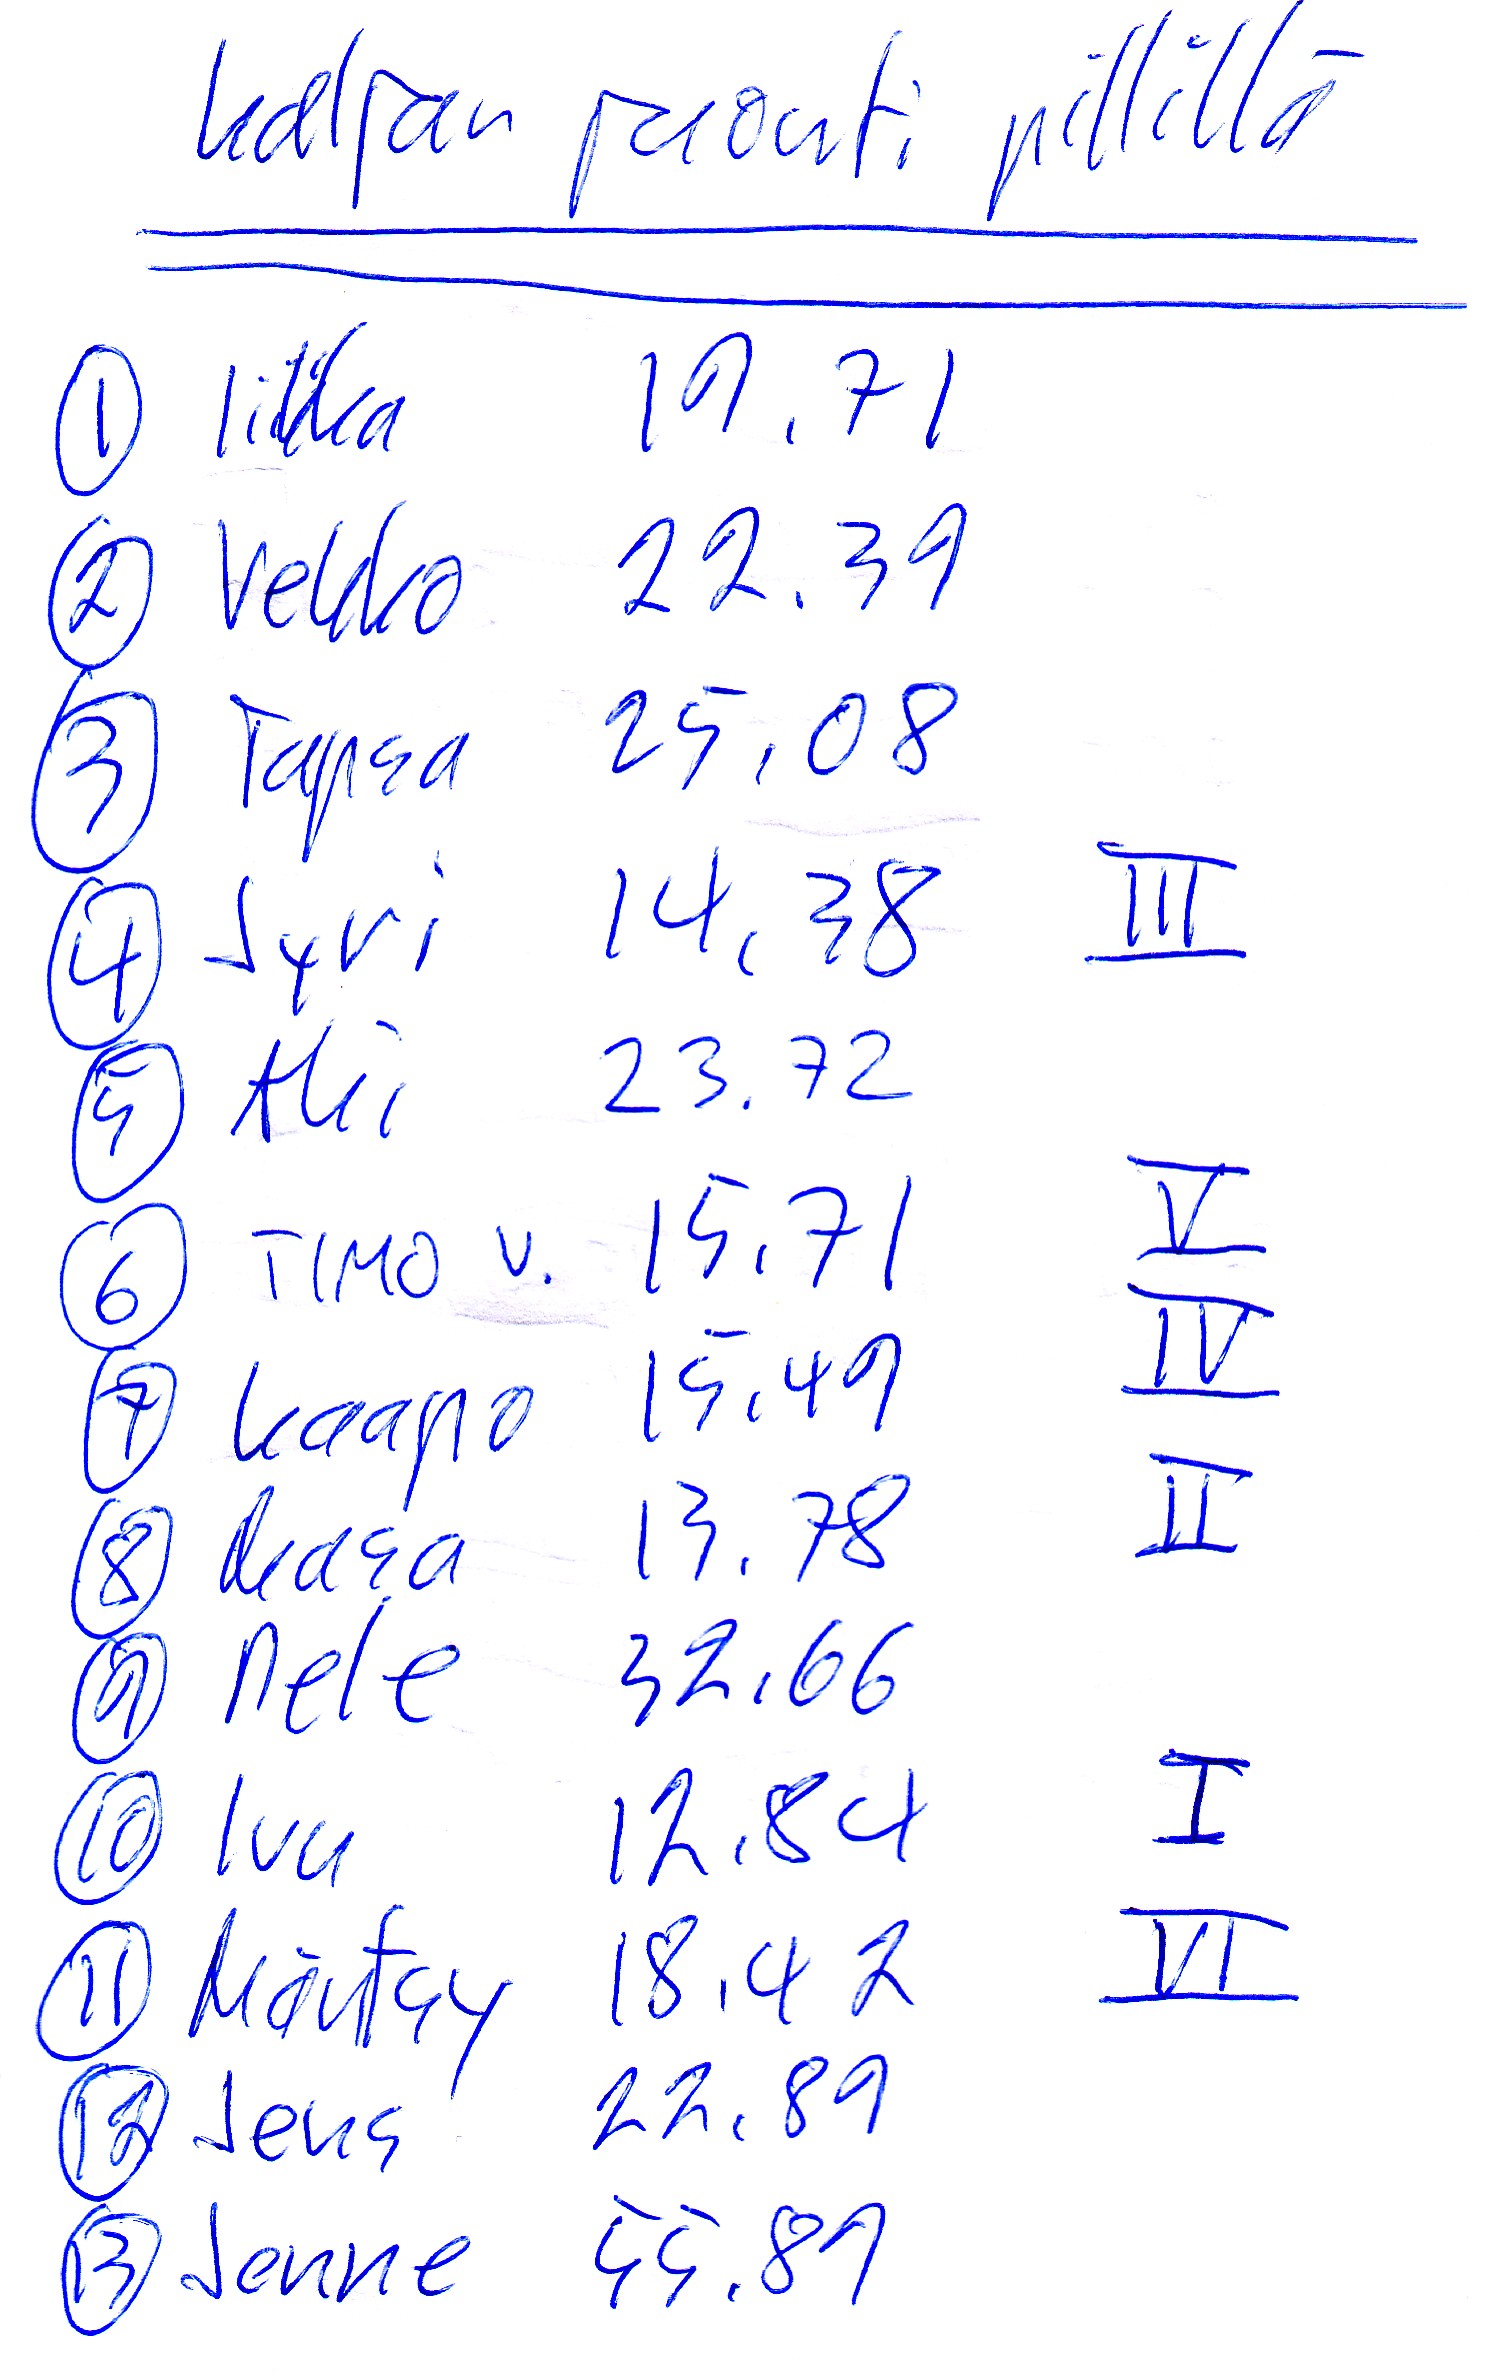 kaljan juonti pillillä
1 Iikka 19.71
2 Vekko 22.39
3 Tapsa 25.08
4 Jyri 14.38 III
5 Aki 23.72
6 TIMO V. 15.71 V
7 kaapo 15.49 IV
8 Masa 13.78 II
9 Pele 32.66
10 Ivu 12.84 I
11 Mäntsy 18.42 VI
12 Jens 22.89
13 Janne 55.89